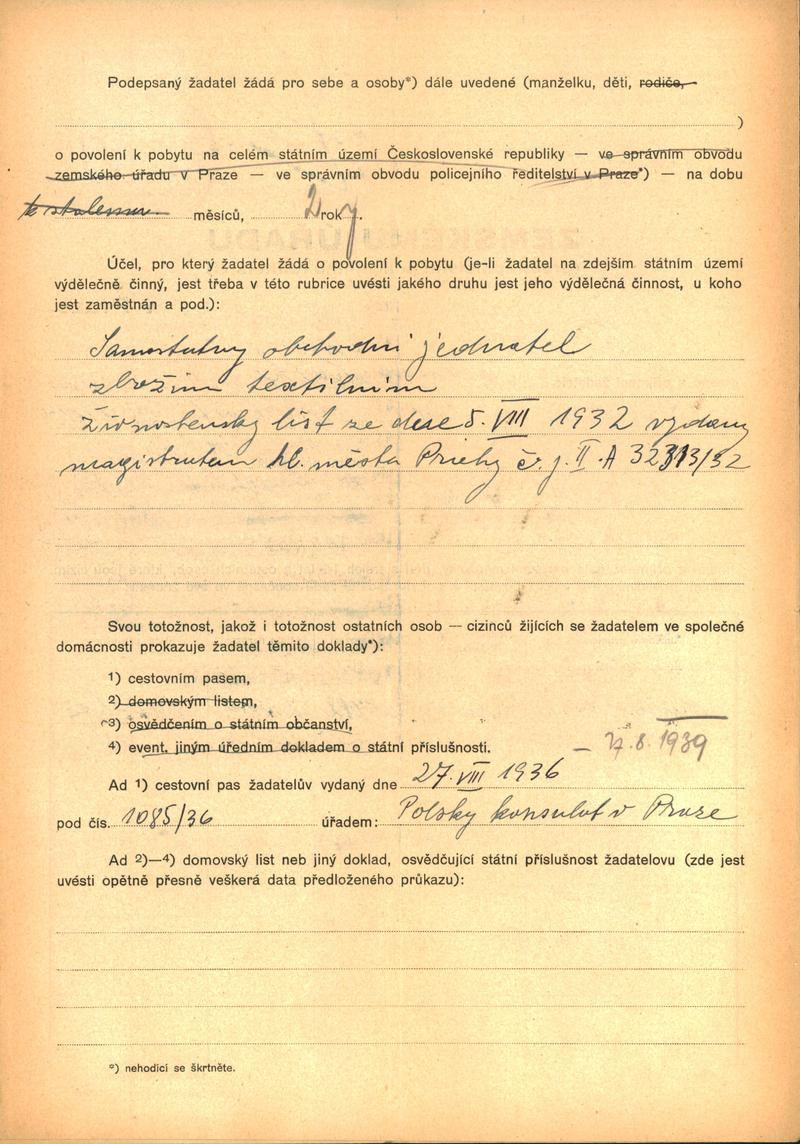 Podepsaný žadatel žádá pro sebe a osoby*) dále uvedené (manželku, děti, rodiče,
)
o povolení k pobytu na celém státním území Československé republiky — ve správním obvodu
zemského úřadu v Praze — ve správním obvodu policejního ředitelství v Praze*) — na dobu
měsíců, 2 roky.
Účel, pro který žadatel žádá o povolení k pobytu (je-li žadatel na zdejším státním území
výdělečně činný, jest třeba v této rubrice uvésti jakého druhu jest jeho výdělečná činnost, u koho
jest zaměstnán a pod.):
Samostatny obchodni jednatel
zbožim textilnim
Živnostensky list ze dne 5. VIII 1932 vydany
magistratem hl. města Prahy č. j. II A 32313/32
Svou totožnost, jakož i totožnost ostatních osob — cizinců žijících se žadatelem ve společné
domácnosti prokazuje žadatel těmito doklady*):
1) cestovním pasem,
2) domovským listem,
3) osvědčením o státním občanství,
4) event. jiným úředním dokladem o státní příslušnosti.
— 27.8.1939
Ad 1) cestovní pas žadatelův vydaný dne 27. VIII 1936
pod čís. 1085/36 úřadem: Polsky konsulat v Praze
Ad 2)—4) domovský list neb jiný doklad, osvědčující státní příslušnost žadatelovu (zde jest
uvésti opětně přesně veškerá data předloženého průkazu):
*) nehodící se škrtněte.